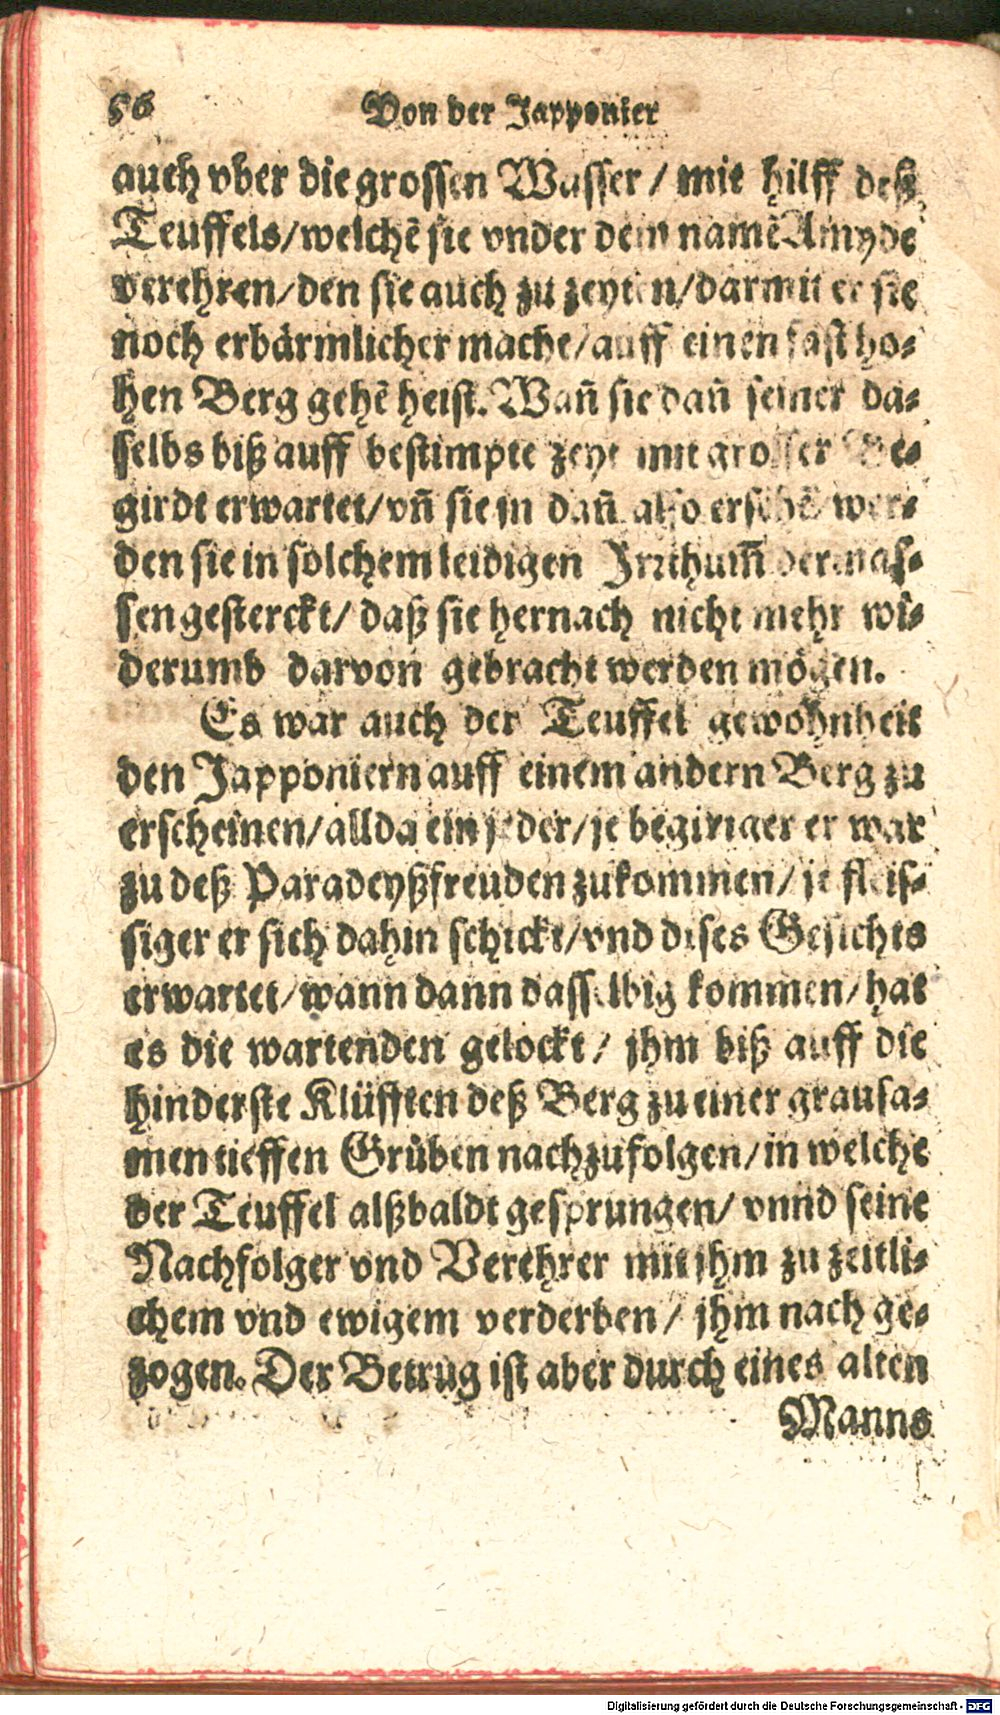 56 Von der Japponier
auch vber die grossen Wasser / mit hilff deß
Teuffels/welchẽ sie vnder dem namẽ Amyde
verehren/den sie auch zu zeyten/darmit er sie
noch erbärmlicher mache/auff einen fast ho-
hen Berg gehẽ heist. Wañ sie dañ seiner da-
selbs biß auff bestimpte zeyt mit grosser Be-
girdt erwartet/vñ sie jn dañ also ersehẽ wer-
den sie in solchem leidigen Jrrthum̃ dermas-
sen gesterckt/ daß sie hernach nicht mehr wi-
derumb darvon gebracht werden mögen.
Es war auch der Teuffel gewohnheit
den Japponiern auff einem andern Berg zu
erscheinen/allda ein jeder/je begiriger er war
zu deß Paradeyßfreuden zukommen/ je fleis-
siger er sich dahin schickt/vnd dises Gesichts
erwartet/wann dann dasselbig kommen/hat
es die wartenden gelockt/ jhm biß auff die
hinderste Klüfften deß Berg zu einer grausa-
men tieffen Grůben nachzufolgen/in welche
der Teuffel alßbaldt gesprungen/ vnnd seine
Nachfolger vnd Verehrer mit jhm zu zeitli-
chem vnd ewigem verderben/ jhm nach ge-
zogen. Der Betrug ist aber durch eines alten
Manns
Digitalisierung gefördert durch die Deutsche Forschungsgemeinschaft - DFG